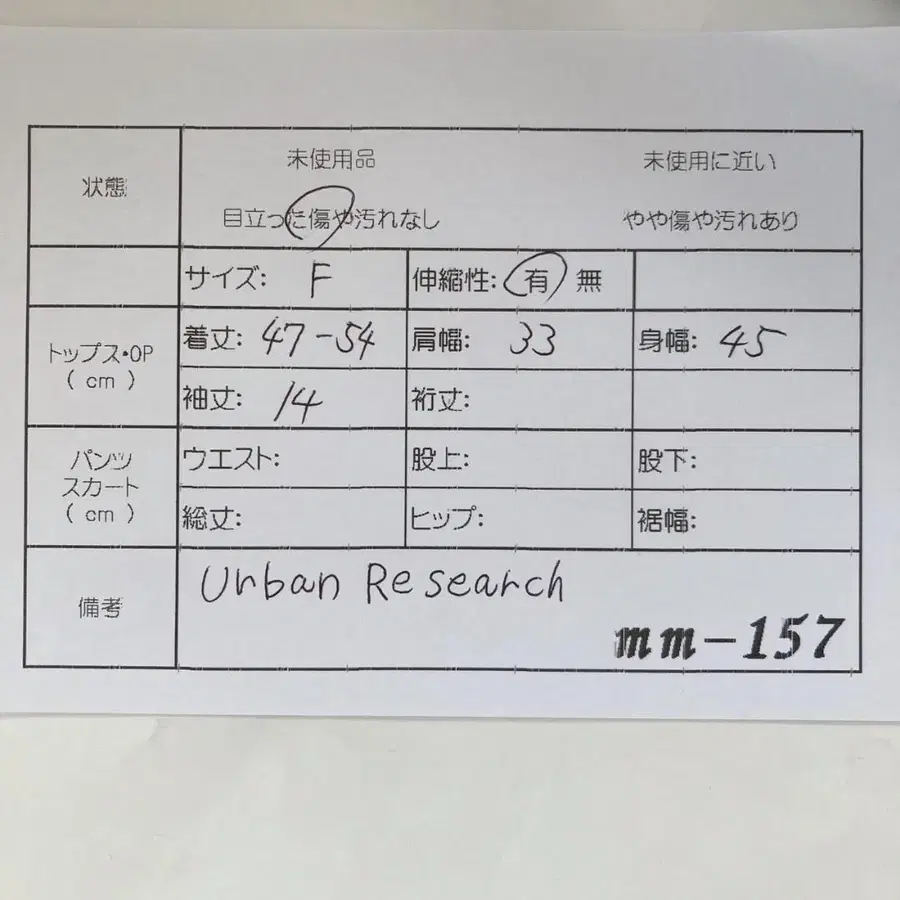 状態
未使用品 未使用に近い
目立った傷や汚れなし やや傷や汚れあり
サイズ: F 伸縮性: 有 無
トップス・OP
( cm )
着丈: 47-54 肩幅: 33 身幅: 45
袖丈: 14 裄丈:
パンツ
スカート
( cm )
ウエスト: 股上: 股下:
総丈: ヒップ: 裾幅:
備考
Urban Research
mm-157